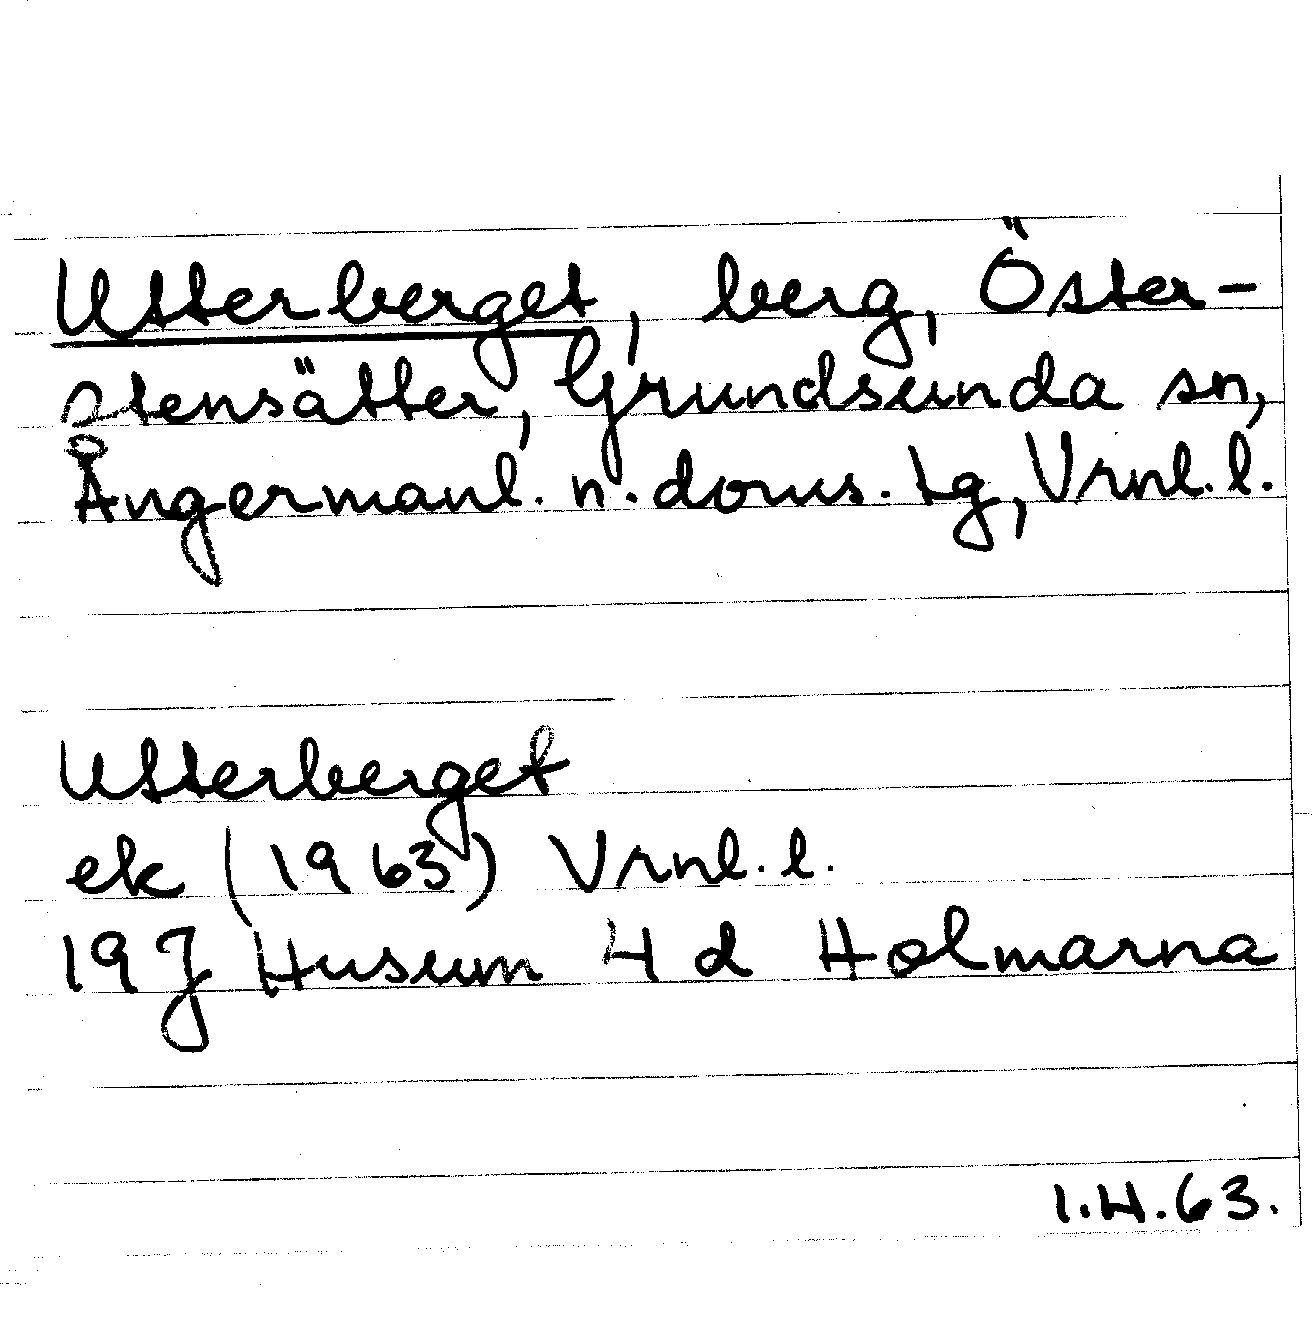 Utterberget, berg, Öster-
stensätter, Grundsunda sn,
Ångermanl. n. doms. tg, Vrnl. l.
Utterberget
ek (1963) Vrnl. l.
19 J Husum 4 d Holmarna
I.H.63.